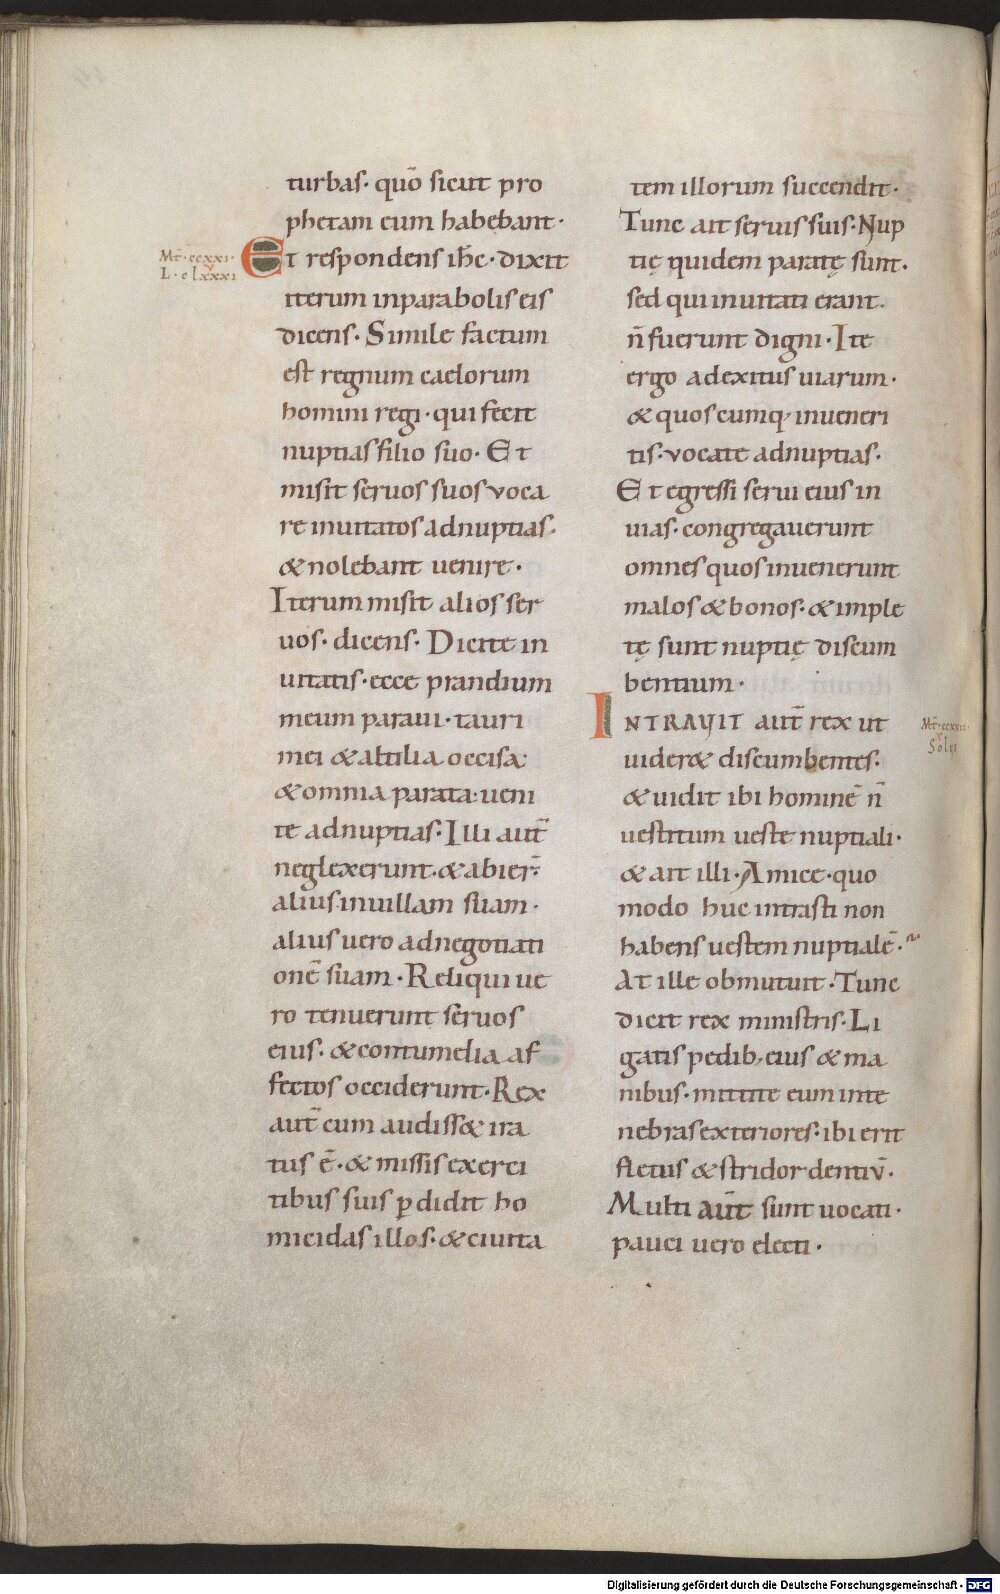 turbas· quō sicut pro
phetam eum habebant·
Mt̄·ccxxi·
L·clxxxi
V
Et respondens ih̄c· dixit
iterum inparabolis eis
dicens· Simile factum
est regnum caelorum
homini regi· qui fecit
nuptias filio suo· Et
misit seruos suos voca
re inuitatos adnuptias·
& nolebant uenire·
Iterum misit alios ser
uos· dicens· Dicite in
uitatis· ecce prandium
meum paraui· tauri
mei & altilia occisa·
& omnia parata· ueni
te adnuptias· Illi aut̄
neglexerunt· & abier̄·
alius inuillam suam·
alius uero adnegotiati
onē suam· Reliqui ue
ro tenuerunt seruos
eius· & contumelia af
fectos occiderunt· Rex
aut̄ cum audiss& ira
tus ē· & missis exerci
tibus suis ꝑdidit ho
micidas illos· & ciuita
tem illorum succendit·
Tunc ait seruis suis· Nup
tię quidem paratę sunt·
sed qui inuitati erant·
n̄ fuerunt digni· Ite
ergo adexitus uiarum·
& quoscumq; inueneri
tis· vocate adnuptias·
Et egressi serui eius in
uias· congregauerunt
omnes quos inuenerunt
malos & bonos· & imple
tę sunt nuptię discum
bentium·
INTRAVIT aut̄ rex ut
Mt̄·ccxxii·
X
Solus
uider& discumbentes·
& uidit ibi hominē n̄
uestitum ueste nuptiali·
& ait illi· Amice· quo
modo huc intrasti non
habens uestem nuptialē·
At ille obmutuit· Tunc
dicit rex ministris· Li
gatis pedib; eius & ma
nibus· mittite eum inte
nebras exteriores· ibi erit
fletus & stridor dentiū·
Multi aut̄ sunt uocati·
pauci uero electi·
Digitalisierung gefördert durch die Deutsche Forschungsgemeinschaft - DFG